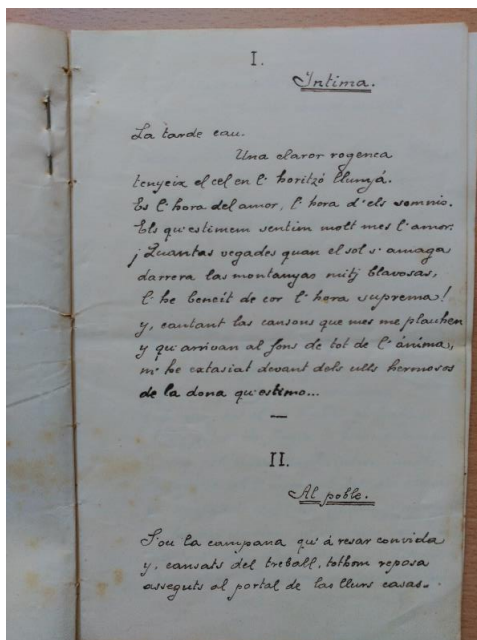 I.
Intima.
La tarde cau.
Una claror rogenca
tenyeix el cel en l' horitzó llunyá.
Es l' hora del amor, l' hora d' els somnis.
Els qu' estimem sentim molt mes l' amor.
¡Quantas vegades quan el sol s' amaga
darrera las montanyas mitj blavosas,
l' he beneit de cor l' hora suprema!
y, cantant las cansons que mes me plauhen
y qu' arrivan al fons de tot de l' ánima,
m' he extasiat devant dels ulls hermosos
de la dona qu' estimo...
II.
Al poble.
S' ou la campana qu' á resar convida
y, cansats del treball, tothom reposa
asseguts al portal de las llurs casas.